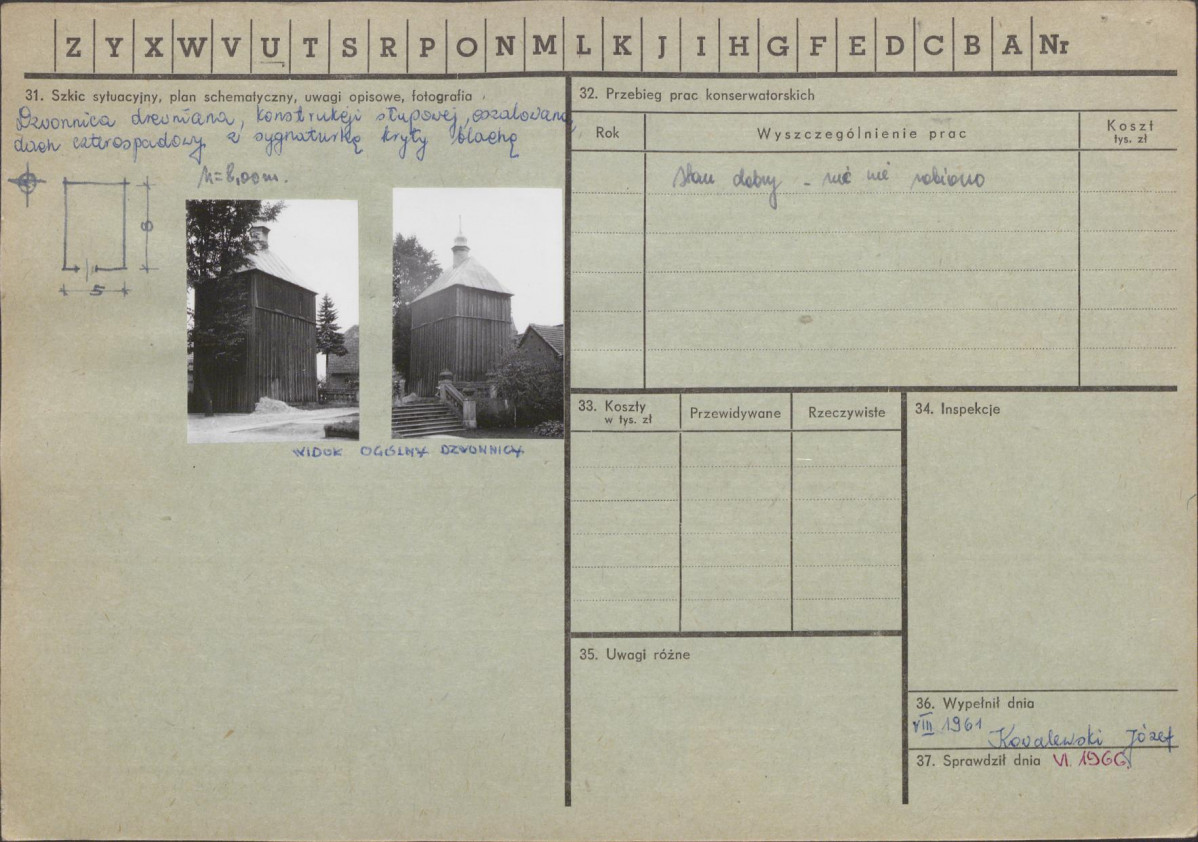 Z Y X W V U T S R P O N M L K J I H G F E D C B A Nr
31. Szkic sytuacyjny, plan schematyczny, uwagi opisowe, fotografia
Dzwonnica drewniana, konstrukcji słupowej, oszalowana,
dach czterospadowy z sygnaturką kryty blachą
h=8,00m.
8
5
WIDOK OGÓLNY DZWONNICY
32. Przebieg prac konserwatorskich
Rok Wyszczególnienie prac Koszt
tys. zł
Stan dobry - nic nie robiono
33. Koszty
w tys. zł
Przewidywane Rzeczywiste
34. Inspekcje
35. Uwagi różne
36. Wypełnił dnia
VIII 1961 Kowalewski Józef
37. Sprawdził dnia VI. 1966